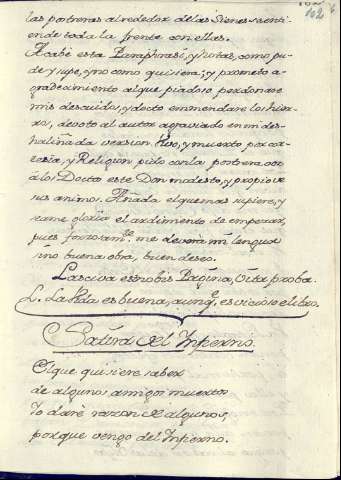 las postreras al rededor de las sienes cienti-
endo toda la frente con ellas.
Acabè esta Paraphrasi, y notas, como pu-
de y supe, y no como quisiera; y prometo a-
gradecimiento al que piadoso perdonare
mis descuidos, y docto emmendare los hier-
ros, devoto al autor agraviado en mi des-
haliñada version. Vivo, y muerto por cor-
tesia, y Religion pido con la postrera
à los Doctos este Don modesto, y propio de
sus animos. Añada el que mas supiere, y
dame gloria el ardimento de empezar,
pues forzosamte. me deverà mi lengua
sino buena obra, buen deseo.
Lasciva est nobis Pagina, Vita proba.
L. La vida es buena, aunqe. es vicioso el libro.
Satira del Infierno.
El que quisiere saber
de algunos amigos muertos
Yo daré razon de algunos,
porque vengo del Infierno.